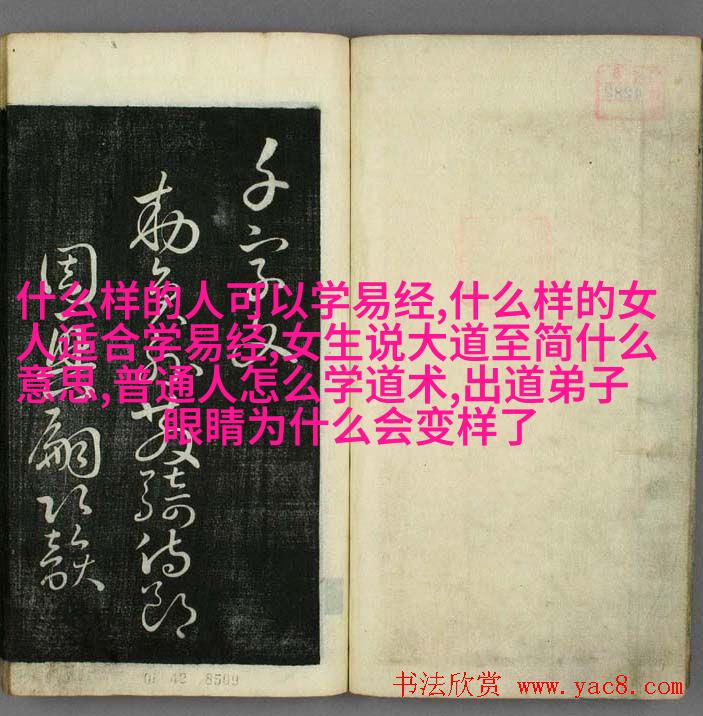 千字文
敕員外散騎侍郎
周興嗣次韻
什么样的人可以学易经,什么样的女
人适合学易经,女生说大道至简什么
意思,普通人怎么学道术,出道弟子
眼睛为什么会变样了
书法欣赏 www.yac8.com